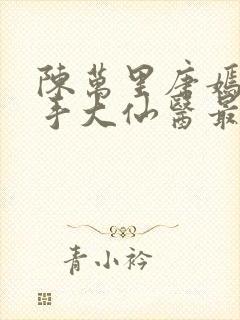 陳萬里唐嫣
手大仙醫最
青小衿